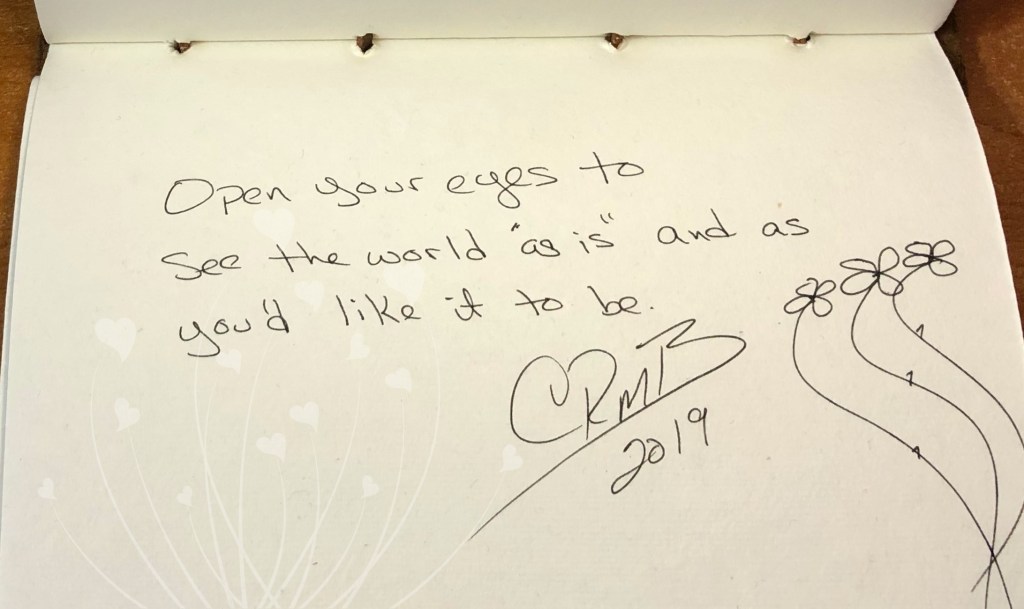 Open your eyes to
see the world "as is" and as
you'd like it to be.
CRMB
2019